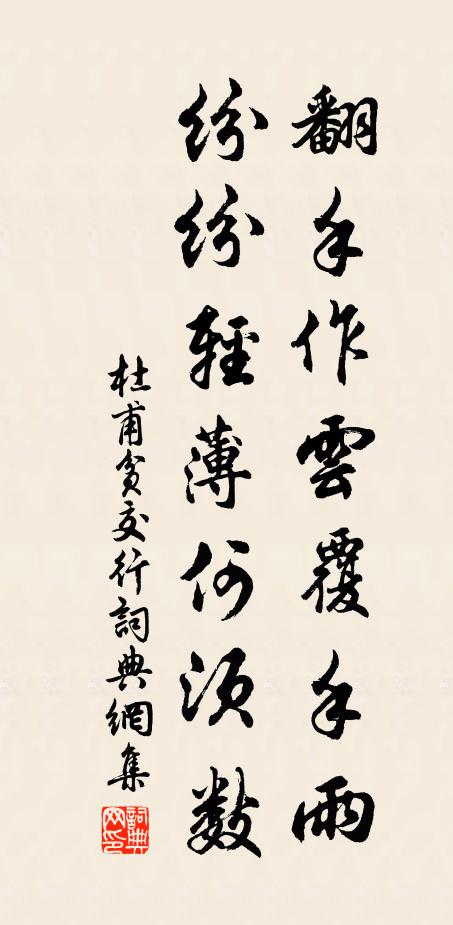 翻手作雲覆手雨
紛紛輕薄何須數
杜甫貧交行詞典網集
詞典網印